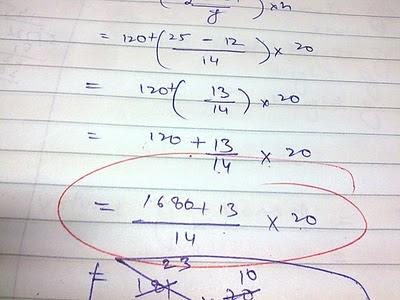 = 120+(25 - 12 / 14) × 20
= 120+(13 / 14) × 20
= 120 + 13 / 14 × 20
= 1680+13 / 14 × 20
= 23 10